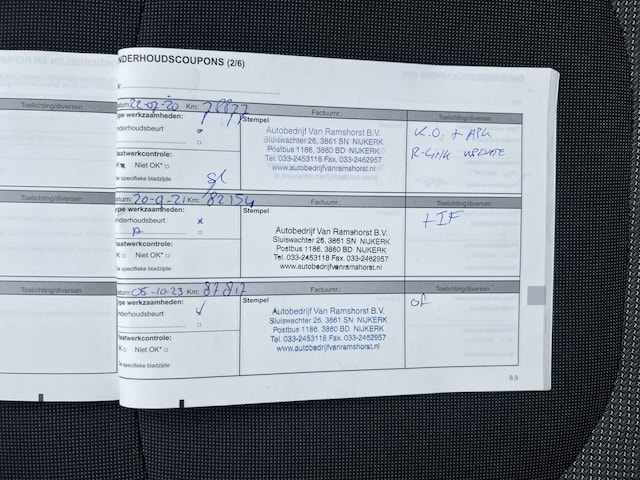 NDERHOUDSCOUPONS (2/6)
Toelichting/diversen
atum: 22-07-20 Km: 78877 Factuurnr.: Toelichting/diversen
ype werkzaamheden: Stempel
nderhoudsbeurt
Autobedrijf Van Ramshorst B.V.
Sluiswachter 26, 3861 SN NIJKERK
Postbus 1186, 3860 BD NIJKERK
Tel. 033-2453118 Fax. 033-2462957
www.autobedrijfvanramshorst.nl
K.O. + APK
R-Link UPDATE
laatwerkcontrole:
Niet OK*
Zie specifieke bladzijde
Toelichting/diversen
atum: 20-9-21 Km: 82154 Factuurnr.: Toelichting/diversen
ype werkzaamheden: Stempel
nderhoudsbeurt x
A
Autobedrijf Van Ramshorst B.V.
Sluiswachter 26, 3861 SN NIJKERK
Postbus 1186, 3860 BD NIJKERK
Tel. 033-2453118 Fax 033-2462957
www.autobedrijfvanramshorst.nl
+IF
laatwerkcontrole:
K Niet OK*
Toelichting/diversen
atum: 05-10-23 Km: 87817 Factuurnr.: Toelichting/diversen
ype werkzaamheden: Stempel
nderhoudsbeurt
Autobedrijf Van Ramshorst B.V.
Sluiswachter 26, 3861 SN NIJKERK
Postbus 1186, 3860 BD NIJKERK
Tel. 033-2453118 Fax 033-2462957
www.autobedrijfvanramshorst.nl
laatwerkcontrole:
K Niet OK*
5.9